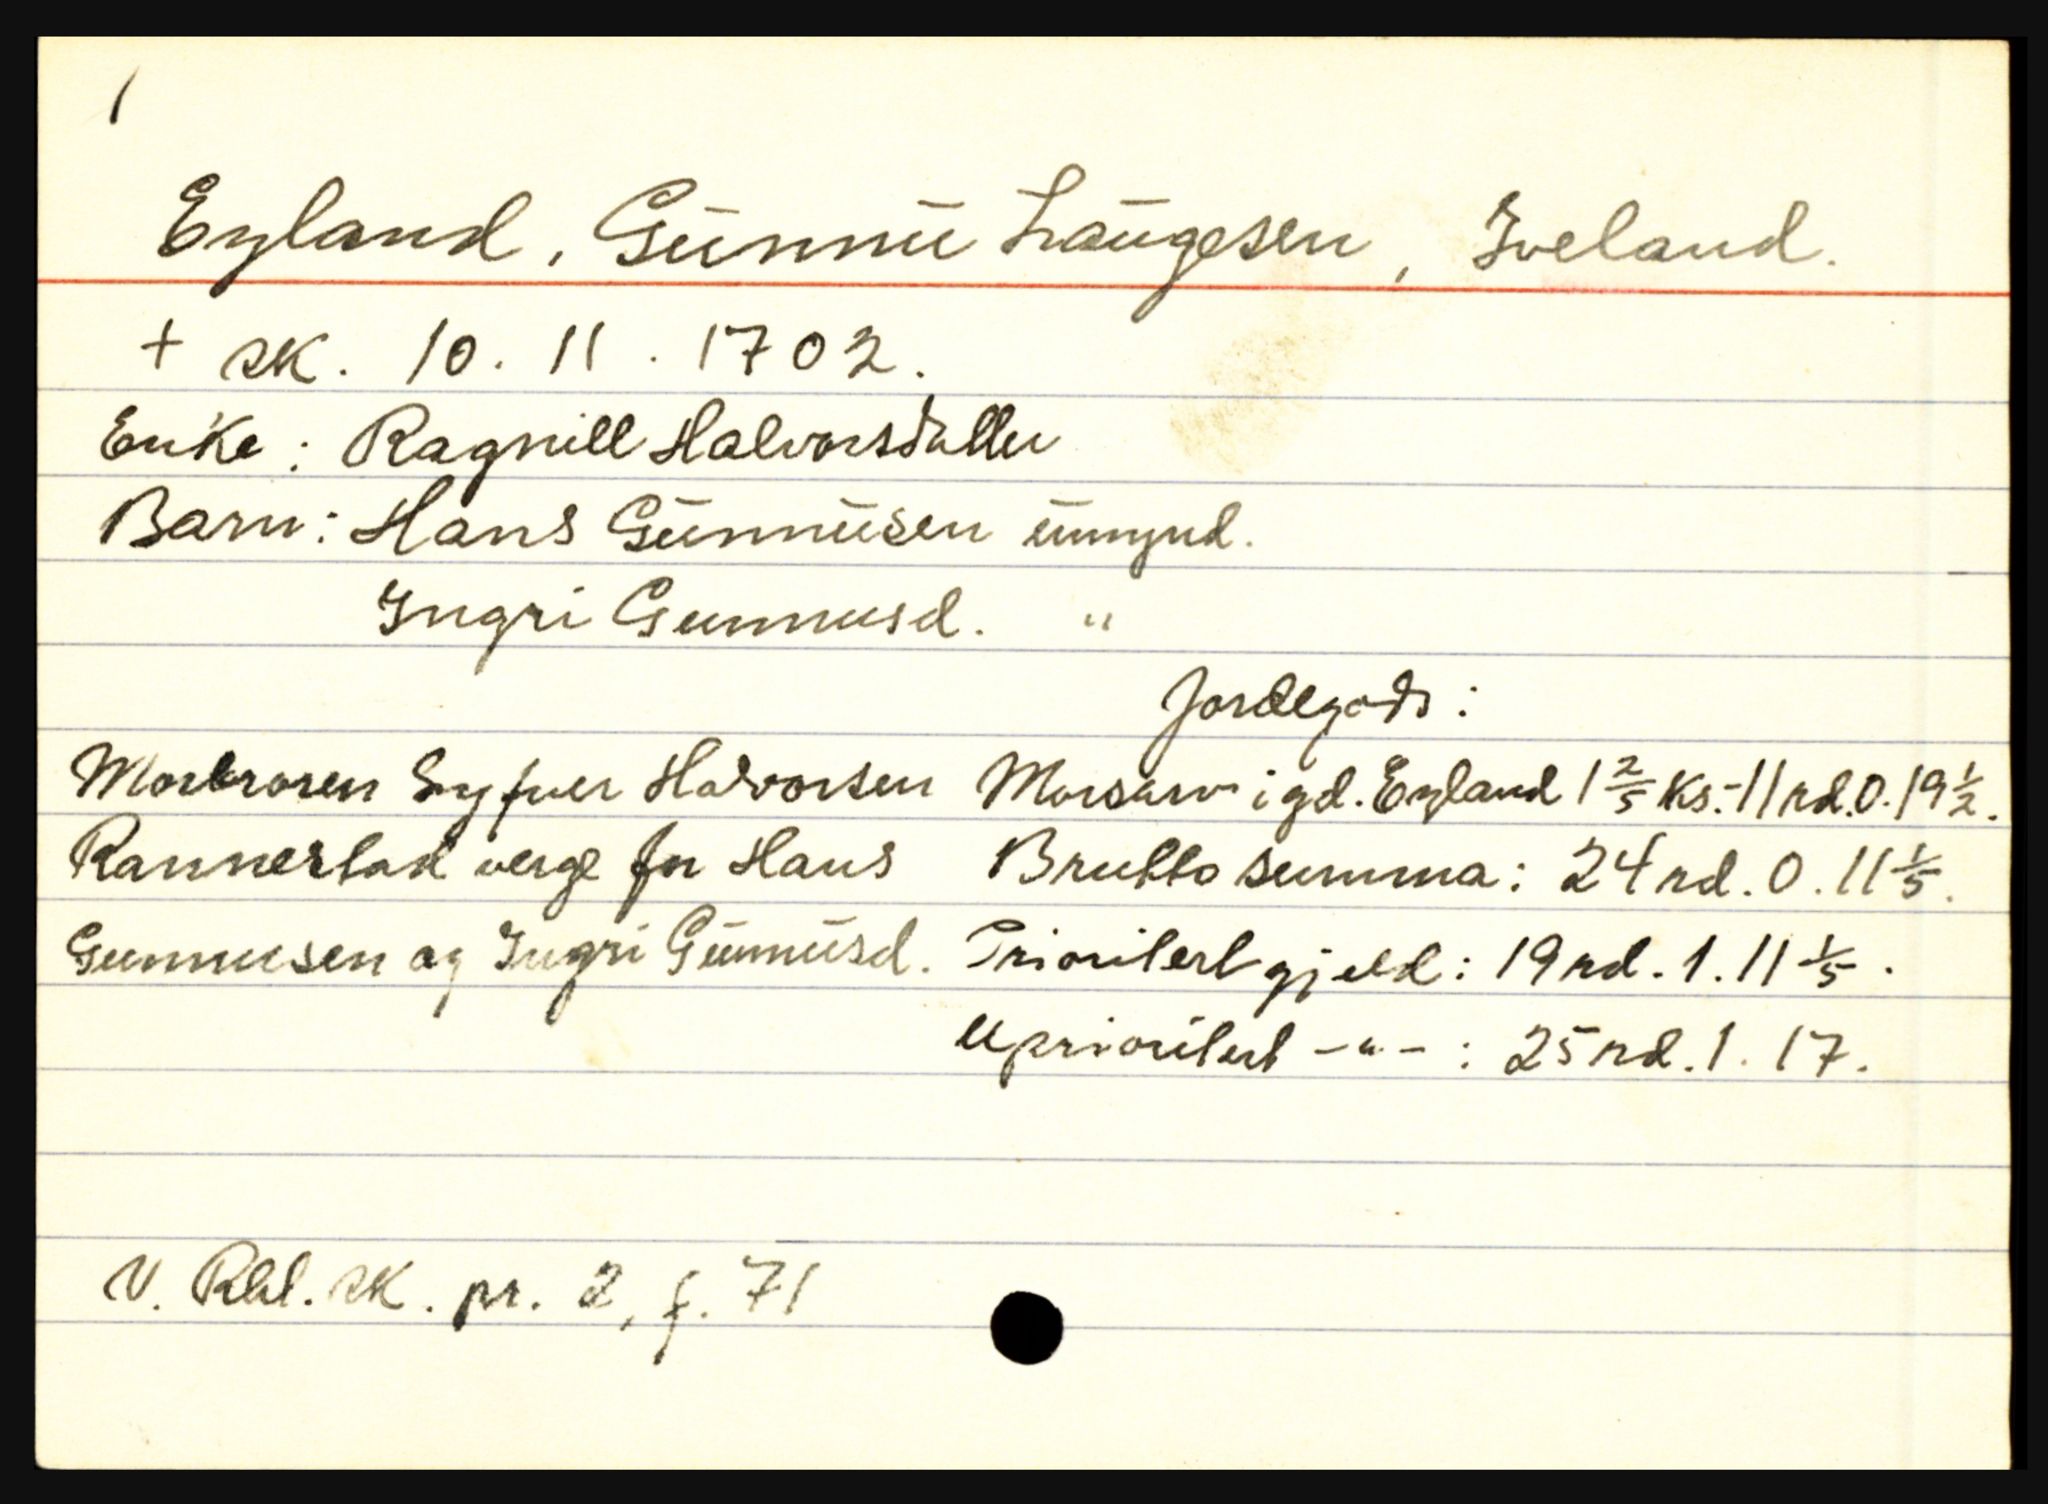 1
Eyland, Gunnu Laugesen, Iveland.
+ sk. 10. 11. 1702.
Enke: Ragnill Halvorsdatter
Barn: Hans Gunnusen umynd.
Ingri Gunnusd. "
Jordegods:
Morbroren Syfver Halvorsen
Rannestad verge for Hans
Gunnusen og Ingri Gunnusd.
Morsarv i gd. Eyland 1 2/5 ks.-11 rd.0.19 1/2.
Brutto summa: 24 rd. 0. 11 1/5.
Prioritert gjeld: 19 rd. 1. 11 1/5.
Uprioritert -"- : 25 rd. 1. 17.
V. Rbl. sk. pr. 2, f. 71